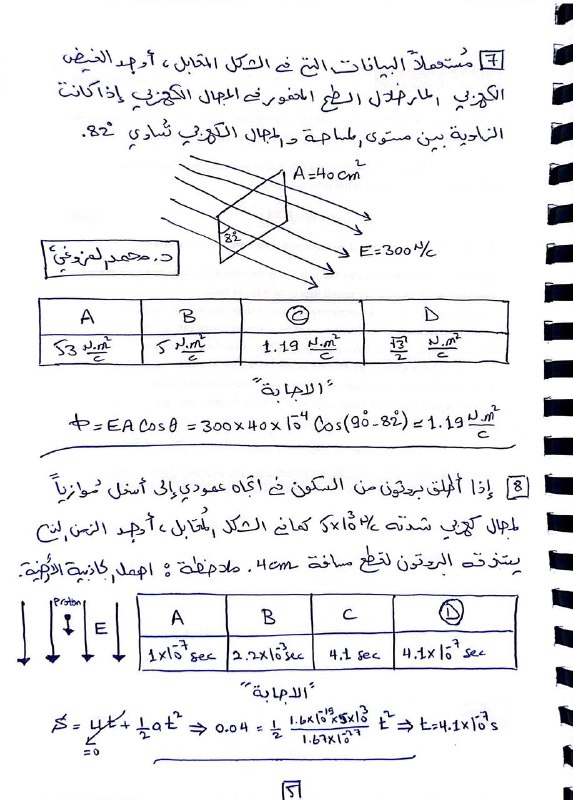 7 مُستعملاً البيانات التي في الشكل المقابل، أوجد الفيض
الكهربي المار خلال السطح المغمور في المجال الكهربي إذا كانت
الزاوية بين مستوى المساحة والمجال الكهربي تُساوي 82°.
A=40cm²
82°
E=300 N/C
د. محمد المزوغي
A B C D
√3 N.m²/C 5 N.m²/C 1.19 N.m²/C √3/2 N.m²/C
"الاجابة"
Φ=EA Cosθ = 300×40×10⁻⁴ Cos(90°-82°) = 1.19 N.m²/C
8 إذا أُطلق بروتون من السكون في اتجاه عمودي إلى أسفل مُوازياً
لمجال كهربي شدته 5×10³ N/C كما في الشكل المُقابل، أوجد الزمن الذي
يستغرقه البروتون لقطع مسافة 4cm. ملاحظة: اهمل الجاذبية الأرضية.
Proton
E
A B C D
1×10⁻⁷ sec 2.2×10³ sec 4.1 sec 4.1×10⁻⁷ sec
"الاجابة"
S = ut + 1/2 at² ⇒ 0.04 = 1/2 (1.6×10⁻¹⁹×5×10³)/(1.67×10⁻²⁷) t² ⇒ t=4.1×10⁻⁷ s
=0
5